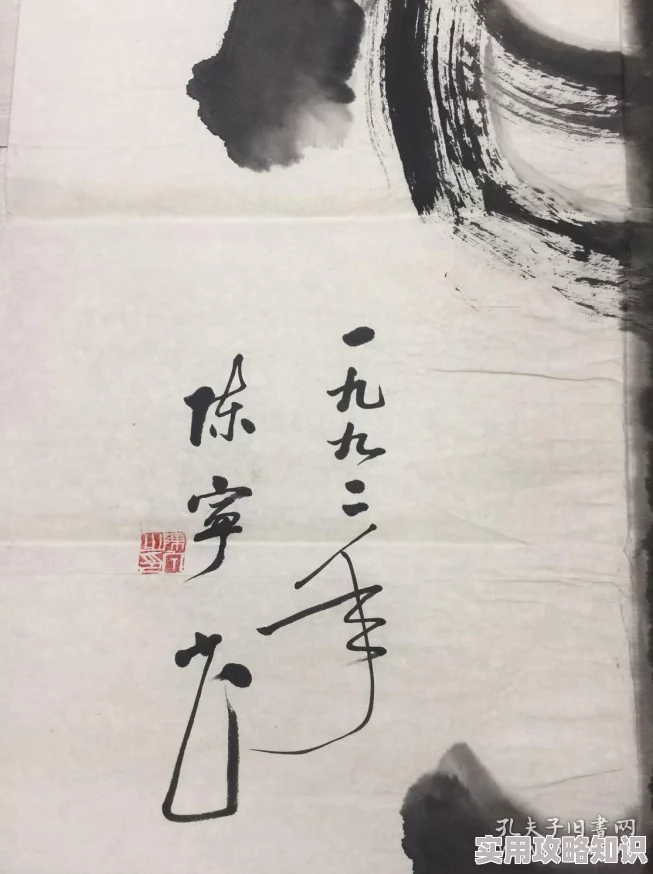 一九九二年
陈宁
孔夫子旧書网
实用攻略知识